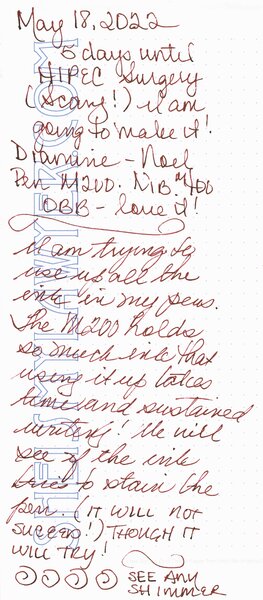 May 18, 2022
5 days until
HIPEC Surgery
(Scary!) I am
going to make it!
Diamine - Noel
Pen M200. Nib M/400
OBB - love it!
I am trying to
use up all the
ink in my pens.
The M200 holds
so much ink that
using it up takes
time and sustained
writing! We will
see if the ink
tries to stain the
pen. (IT WILL NOT
SUCCEED!) THOUGH IT
WILL TRY!
SEE ANY
SHIMMER